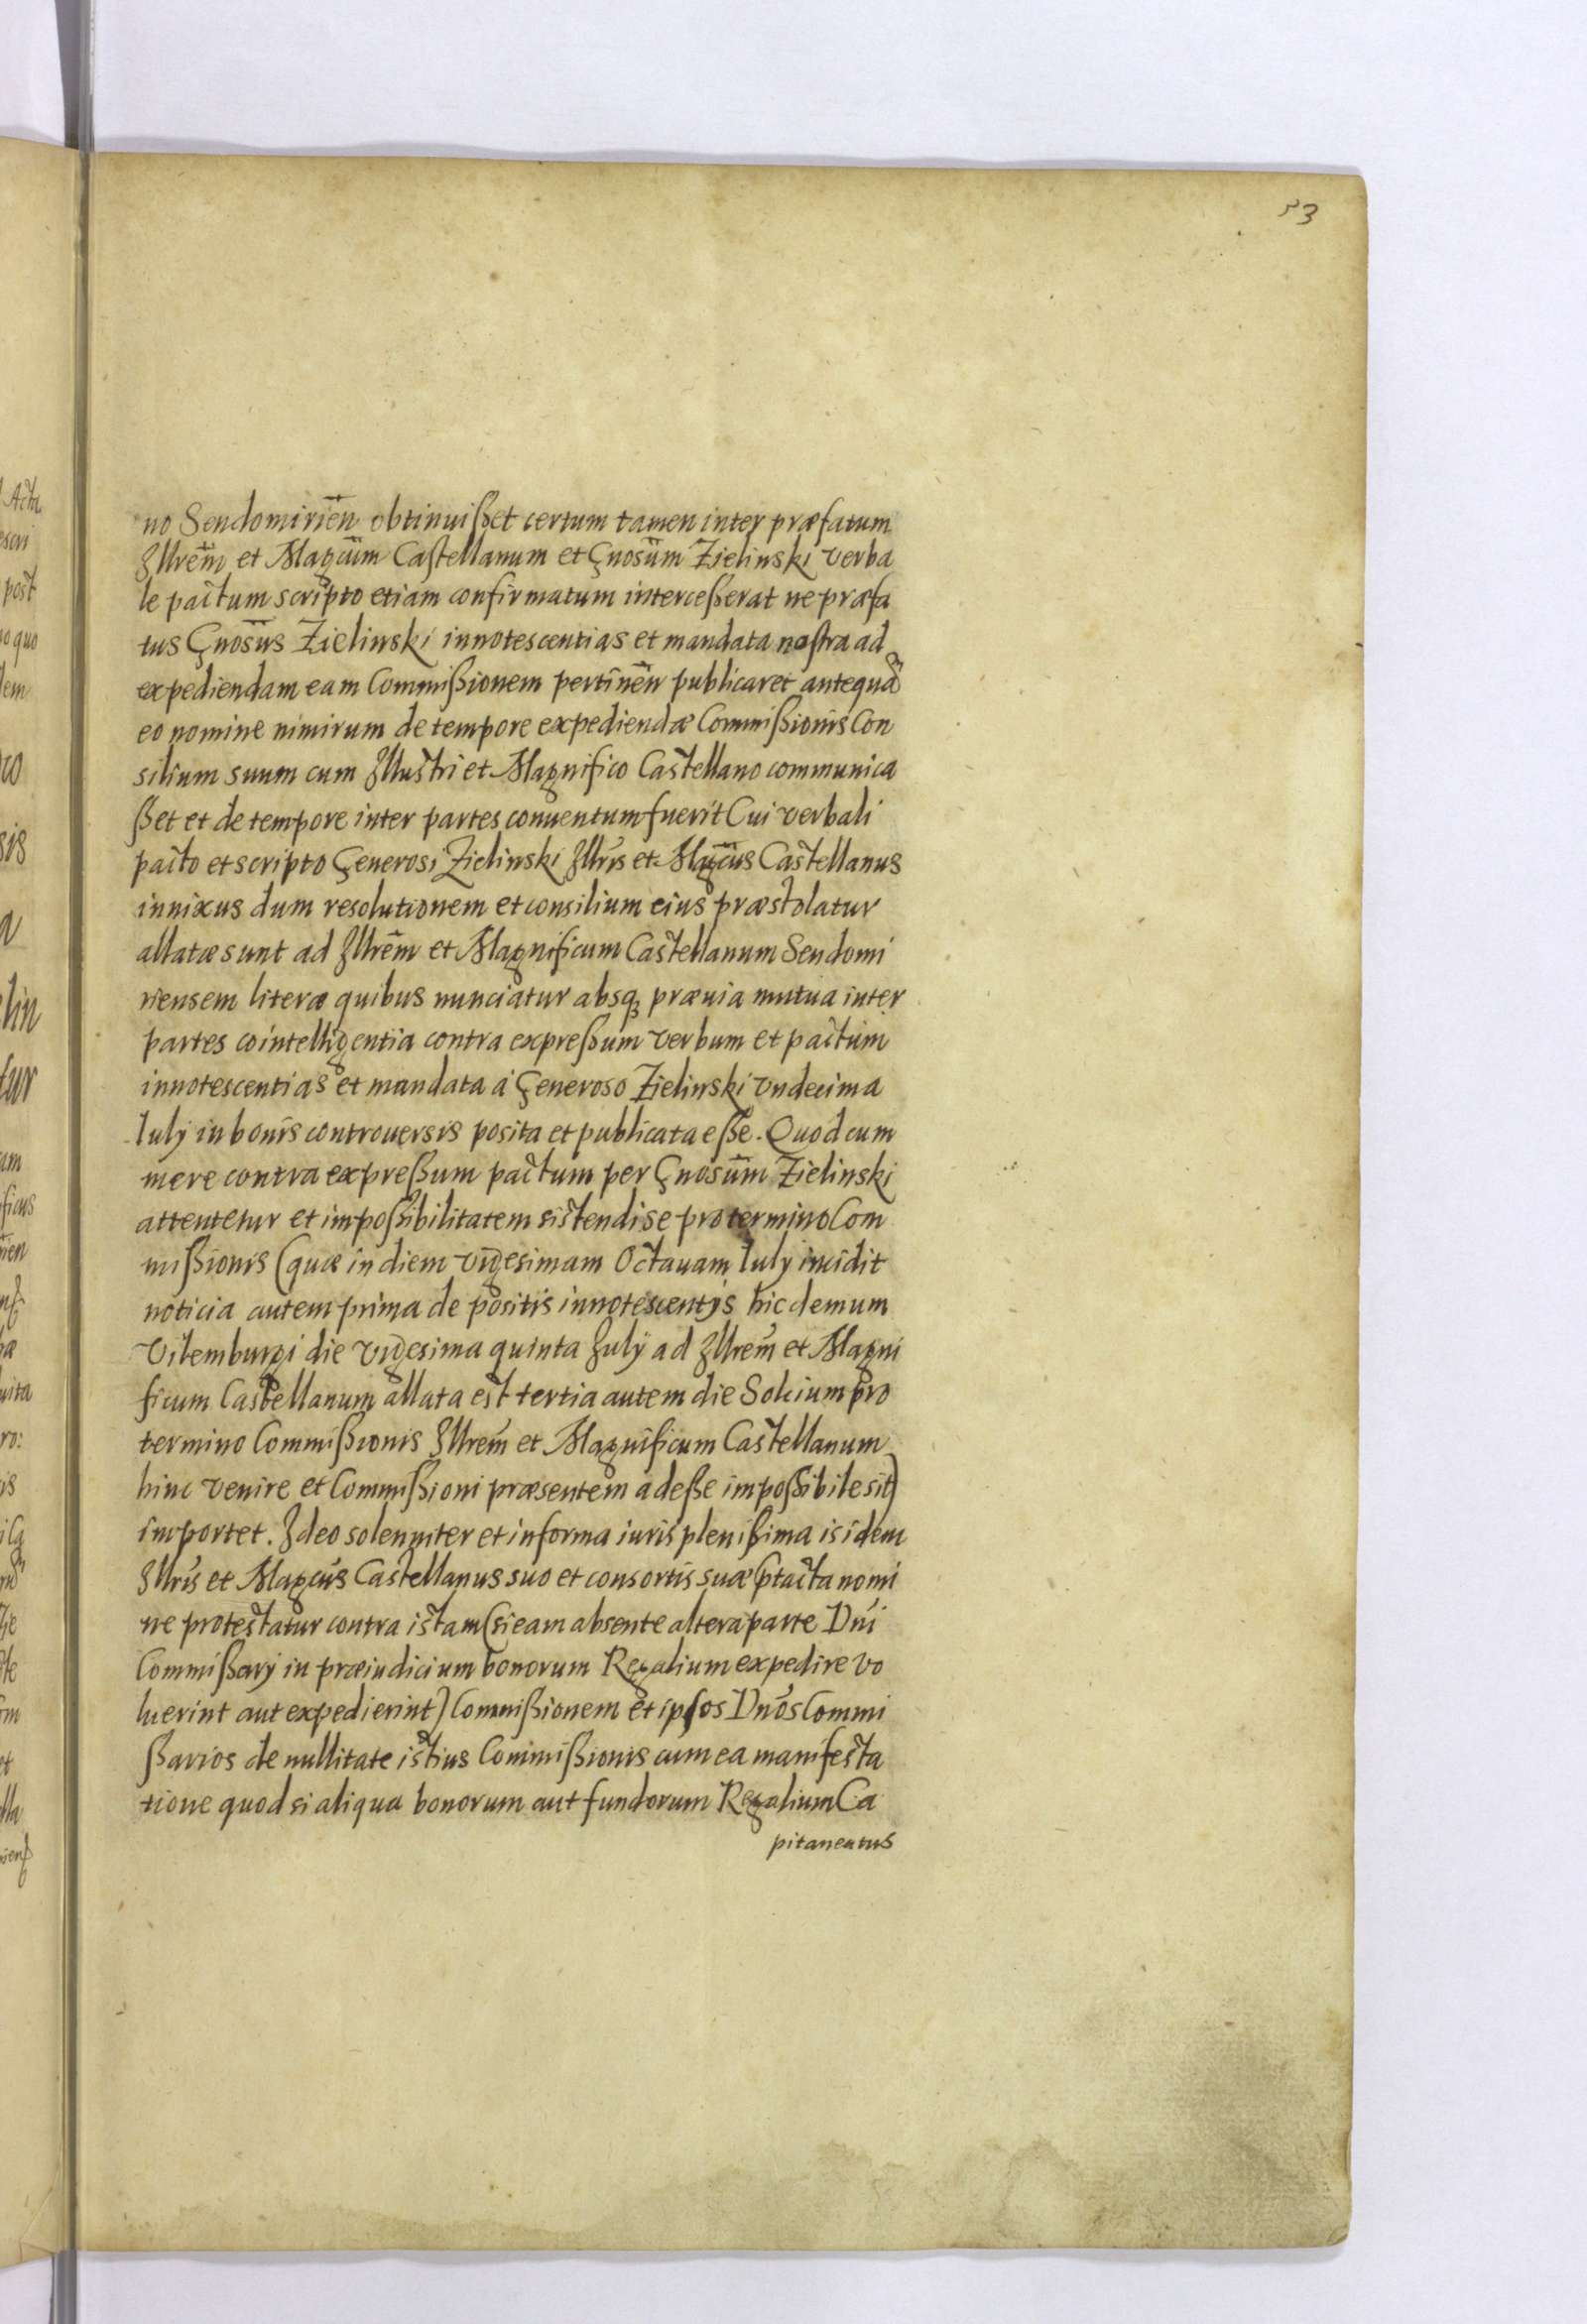 53
no Sendomirień obtinuißet certum tamen inter præfatum
Illrem̃ et Magcum̃ Castellanum et Gnosum̃ Zielinski verba
le pactum scripto etiam confirmatum interceßerat ne præfa
tus Gnosus̃ Zielinski innotescentias et mandata nostra ad
expediendam eam Commißionem pertineñ publicaret antequã
eo nomine nimirum de tempore expediendæ Commißionis Con
silium suum cum Illustri et Magnifico Castellano communica
ßet et de tempore inter partes conuentum fuerit Cui verbali
pacto et scripto Generosi Zielinski Illris̃ et Magcus̃ Castellanus
innixus dum resolutionem et consilium eius præstolatur
allatæ sunt ad Illrem̃ et Magnificum Castellanum Sendomi
riensem literæ quibus nunciatur absq; præuia mutua inter
partes cointelligentia contra expreßum verbum et pactum
innotescentias et mandata á Generoso Zielinski vndecima
Iulÿ in bonis controuersis posita et publicata eße. Quod cum
mere contra expreßum pactum per Gnosum̃ Zielinski
attentetur et impoßibilitatem sistendi se pro termino Com
mißionis (quæ in diem vigesimam Octauam Iulÿ incidit
noticia autem prima de positis innotescentÿs hic demum
Vilemburgi die vigesima quinta Iulÿ ad Illrem̃ et Magni
ficum Castellanum allata est tertia autem die Solcium pro
termino Commißionis Illrem̃ et Magnificum Castellanum
hinc venire et Commißioni præsentem adeße impoßibile sit)
importet. Ideo solenniter et in forma iuris plenißima is idem
Illris̃ et Magcus̃ Castellanus suo et consortis suæ ptacta nomi
ne protestatur contra istam (si eam absente altera parte Dni̇̃
Commißarÿ in præiudicium bonorum Regalium expedire vo
luerint aut expedierint) Commißionem et ipsos Dnos̃ Commi
ßarios de nullitate istius Commißionis cum ea manifesta
tione quod si aliqua bonorum aut fundorum Regalium Ca
pitaneatus